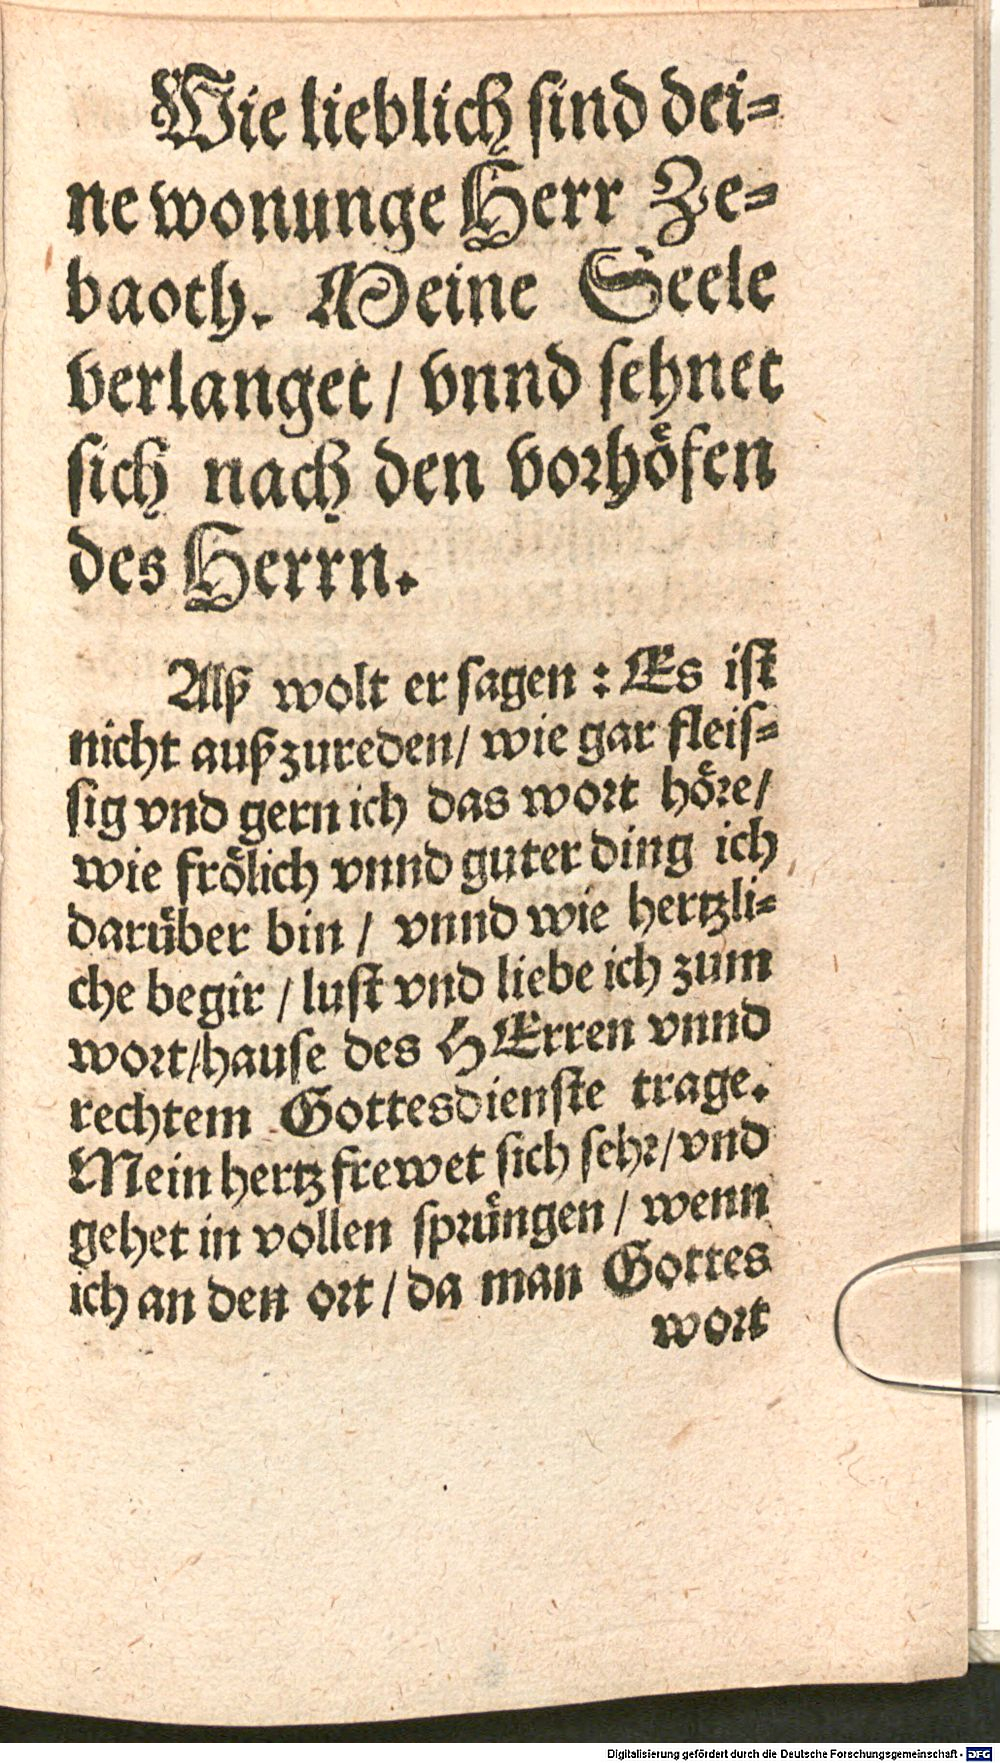 Wie lieblich sind dei=
ne wonunge Herr Ze=
baoth. Meine Seele
verlanget / vnnd sehnet
sich nach den vorhöfen
des Herrn.
Alß wolt er sagen : Es ist
nicht außzureden / wie gar fleis=
sig vnd gern ich das wort höre /
wie frölich vnnd guter ding ich
darüber bin / vnnd wie hertzli=
che begir / lust vnd liebe ich zum
wort / hause des HErren vnnd
rechtem Gottesdienste trage.
Mein hertz frewet sich sehr / vnd
gehet in vollen sprüngen / wenn
ich an den ort / da man Gottes
wort
Digitalisierung gefördert durch die Deutsche Forschungsgemeinschaft - DFG